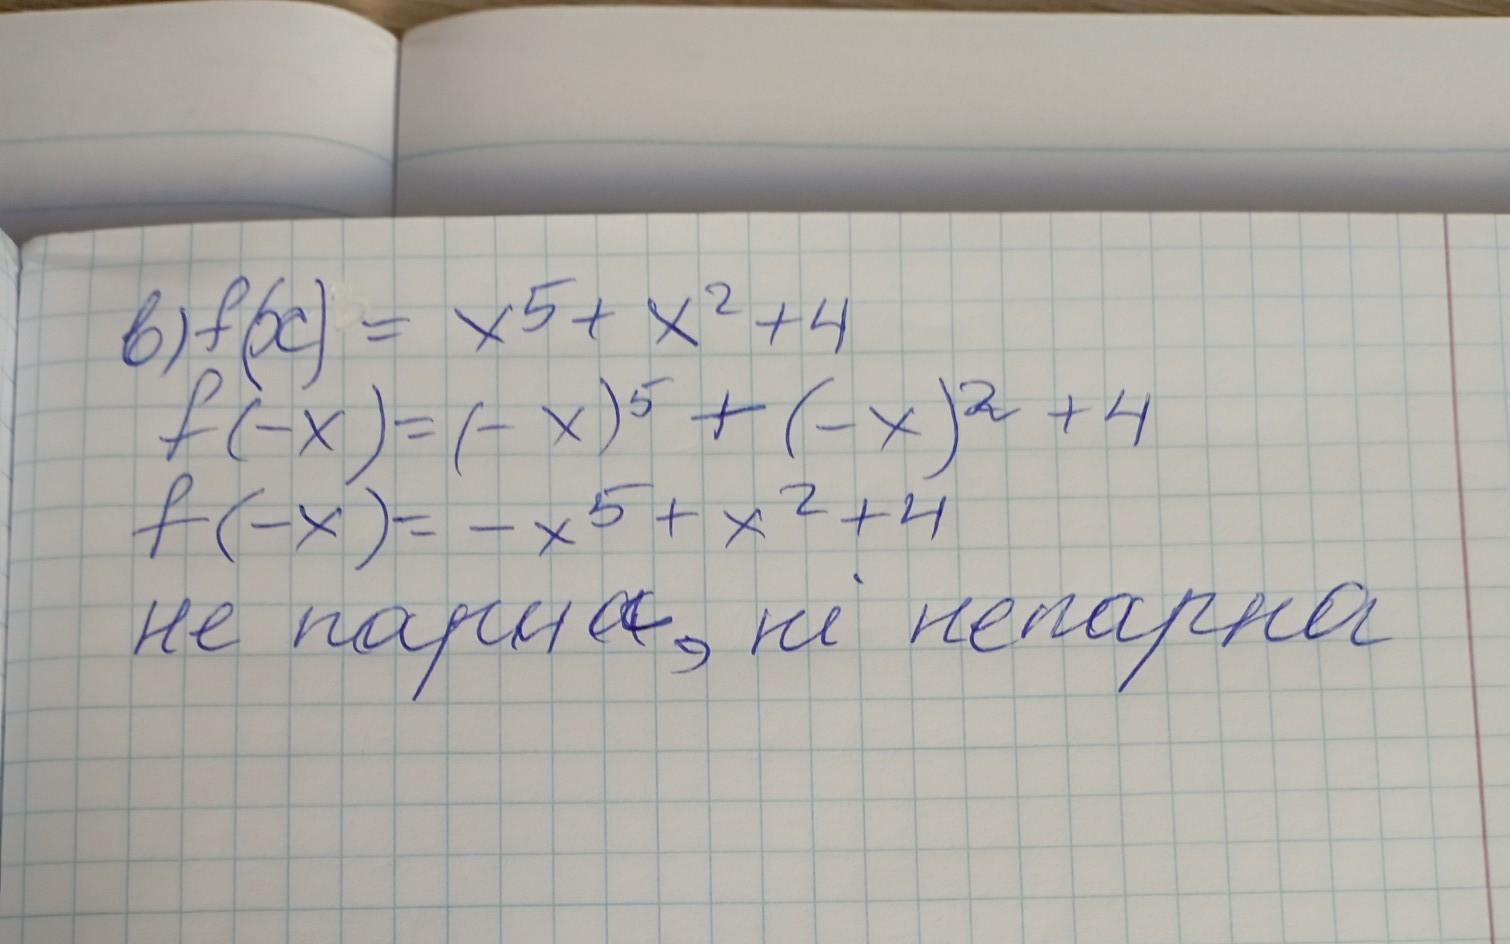 в) f(x) = x⁵ + x² + 4
f(-x) = (-x)⁵ + (-x)² + 4
f(-x) = -x⁵ + x² + 4
не парна, ні непарна